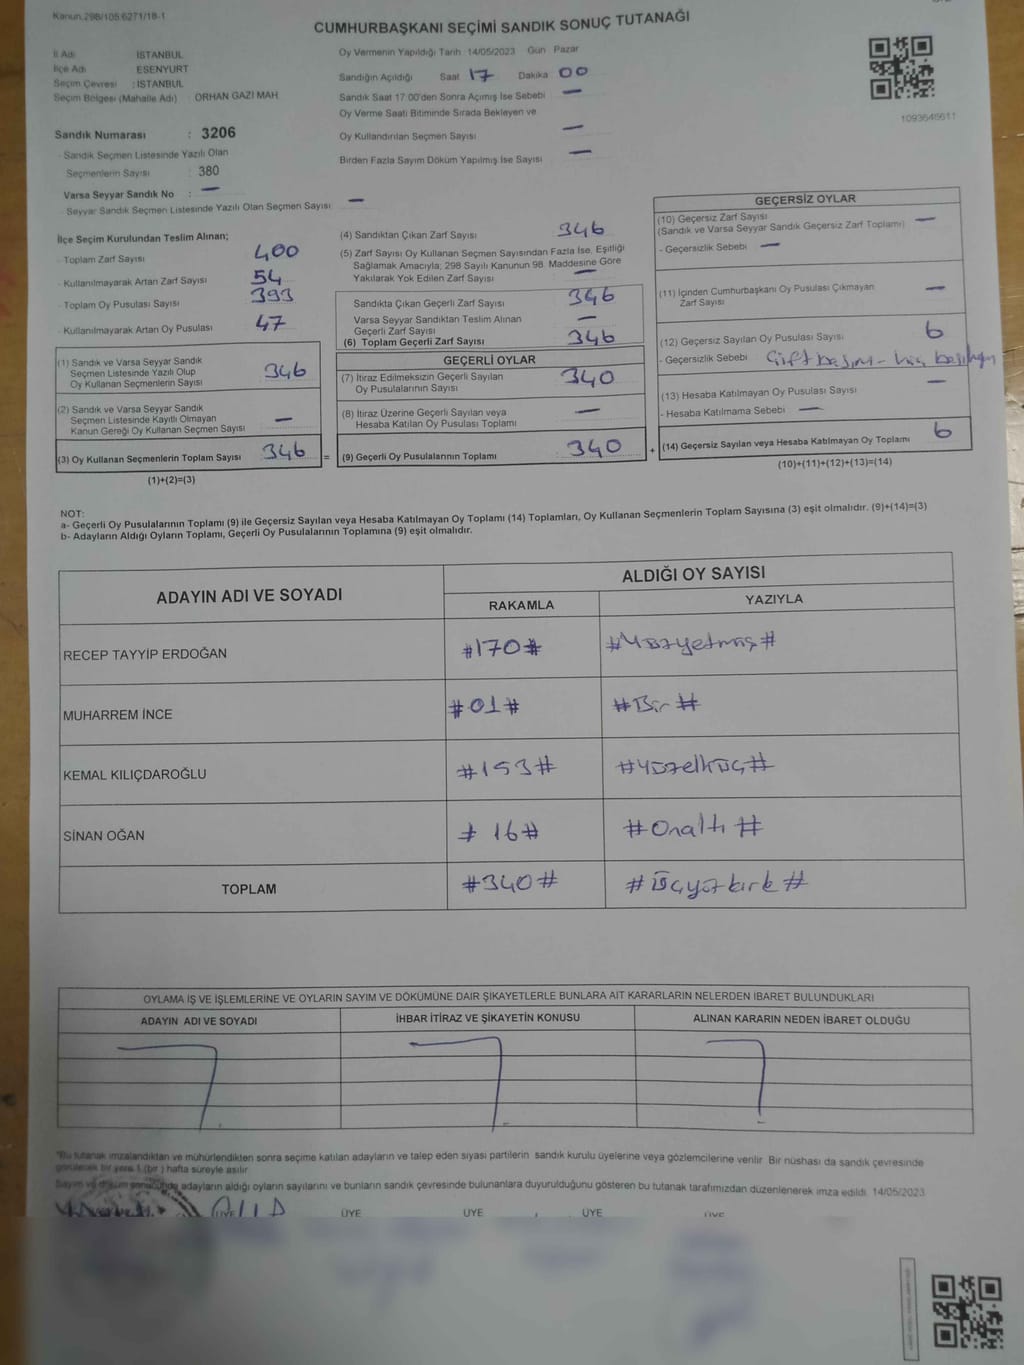 Kanun.298/105.6271/18-1
CUMHURBAŞKANI SEÇİMİ SANDIK SONUÇ TUTANAĞI
İl Adı : İSTANBUL
İlçe Adı : ESENYURT
Seçim Çevresi : İSTANBUL
Seçim Bölgesi (Mahalle Adı) : ORHAN GAZİ MAH.
Sandık Numarası : 3206
- Sandık Seçmen Listesinde Yazılı Olan
Seçmenlerin Sayısı : 380
Varsa Seyyar Sandık No : —
- Seyyar Sandık Seçmen Listesinde Yazılı Olan Seçmen Sayısı : —
Oy Vermenin Yapıldığı Tarih : 14/05/2023 Gün : Pazar
Sandığın Açıldığı Saat 17 Dakika 00
Sandık Saat 17.00'den Sonra Açılmış İse Sebebi —
Oy Verme Saati Bitiminde Sırada Bekleyen ve
Oy Kullandırılan Seçmen Sayısı —
Birden Fazla Sayım Döküm Yapılmış İse Sayısı —
1093646611
İlçe Seçim Kurulundan Teslim Alınan;
- Toplam Zarf Sayısı 400
- Kullanılmayarak Artan Zarf Sayısı 54
- Toplam Oy Pusulası Sayısı 393
- Kullanılmayarak Artan Oy Pusulası 47
(1) Sandık ve Varsa Seyyar Sandık
Seçmen Listesinde Yazılı Olup
Oy Kullanan Seçmenlerin Sayısı 346
(2) Sandık ve Varsa Seyyar Sandık
Seçmen Listesinde Kayıtlı Olmayan
Kanun Gereği Oy Kullanan Seçmen Sayısı —
(3) Oy Kullanan Seçmenlerin Toplam Sayısı 346
(1)+(2)=(3)
(4) Sandıktan Çıkan Zarf Sayısı 346
(5) Zarf Sayısı Oy Kullanan Seçmen Sayısından Fazla İse, Eşitliği
Sağlamak Amacıyla; 298 Sayılı Kanunun 98. Maddesine Göre
Yakılarak Yok Edilen Zarf Sayısı —
Sandıkta Çıkan Geçerli Zarf Sayısı 346
Varsa Seyyar Sandıktan Teslim Alınan
Geçerli Zarf Sayısı —
(6) Toplam Geçerli Zarf Sayısı 346
GEÇERLİ OYLAR
(7) İtiraz Edilmeksizin Geçerli Sayılan
Oy Pusulalarının Sayısı 340
(8) İtiraz Üzerine Geçerli Sayılan veya
Hesaba Katılan Oy Pusulası Toplamı —
= (9) Geçerli Oy Pusulalarının Toplamı 340
GEÇERSİZ OYLAR
(10) Geçersiz Zarf Sayısı —
(Sandık ve Varsa Seyyar Sandık Geçersiz Zarf Toplamı)
- Geçersizlik Sebebi —
(11) İçinden Cumhurbaşkanı Oy Pusulası Çıkmayan
Zarf Sayısı —
(12) Geçersiz Sayılan Oy Pusulası Sayısı 6
- Geçersizlik Sebebi Çift basım - hiç
(13) Hesaba Katılmayan Oy Pusulası Sayısı —
- Hesaba Katılmama Sebebi —
+ (14) Geçersiz Sayılan veya Hesaba Katılmayan Oy Toplamı 6
(10)+(11)+(12)+(13)=(14)
NOT:
a- Geçerli Oy Pusulalarının Toplamı (9) ile Geçersiz Sayılan veya Hesaba Katılmayan Oy Toplamı (14) Toplamları, Oy Kullanan Seçmenlerin Toplam Sayısına (3) eşit olmalıdır. (9)+(14)=(3)
b- Adayların Aldığı Oyların Toplamı, Geçerli Oy Pusulalarının Toplamına (9) eşit olmalıdır.
ADAYIN ADI VE SOYADI ALDIĞI OY SAYISI
RAKAMLA YAZIYLA
RECEP TAYYİP ERDOĞAN #170# #Yüzyetmiş#
MUHARREM İNCE #01# #Bir#
KEMAL KILIÇDAROĞLU #153# #Yüzelliüç#
SİNAN OĞAN # 16# #Onaltı#
TOPLAM #340# #Üçyüzkırk#
OYLAMA İŞ VE İŞLEMLERİNE VE OYLARIN SAYIM VE DÖKÜMÜNE DAİR ŞİKAYETLERLE BUNLARA AİT KARARLARIN NELERDEN İBARET BULUNDUKLARI
ADAYIN ADI VE SOYADI İHBAR İTİRAZ VE ŞİKAYETİN KONUSU ALINAN KARARIN NEDEN İBARET OLDUĞU
*Bu tutanak imzalandıktan ve mühürlendikten sonra seçime katılan adayların ve talep eden siyasi partilerin sandık kurulu üyelerine veya gözlemcilerine verilir. Bir nüshası da sandık çevresinde
görülecek bir yere 1 (bir) hafta süreyle asılır.
Sayım ve döküm sonucunda adayların aldığı oyların sayılarını ve bunların sandık çevresinde bulunanlara duyurulduğunu gösteren bu tutanak tarafımızdan düzenlenerek imza edildi. 14/05/2023
ÜYE ÜYE ÜYE ÜYE ÜYE